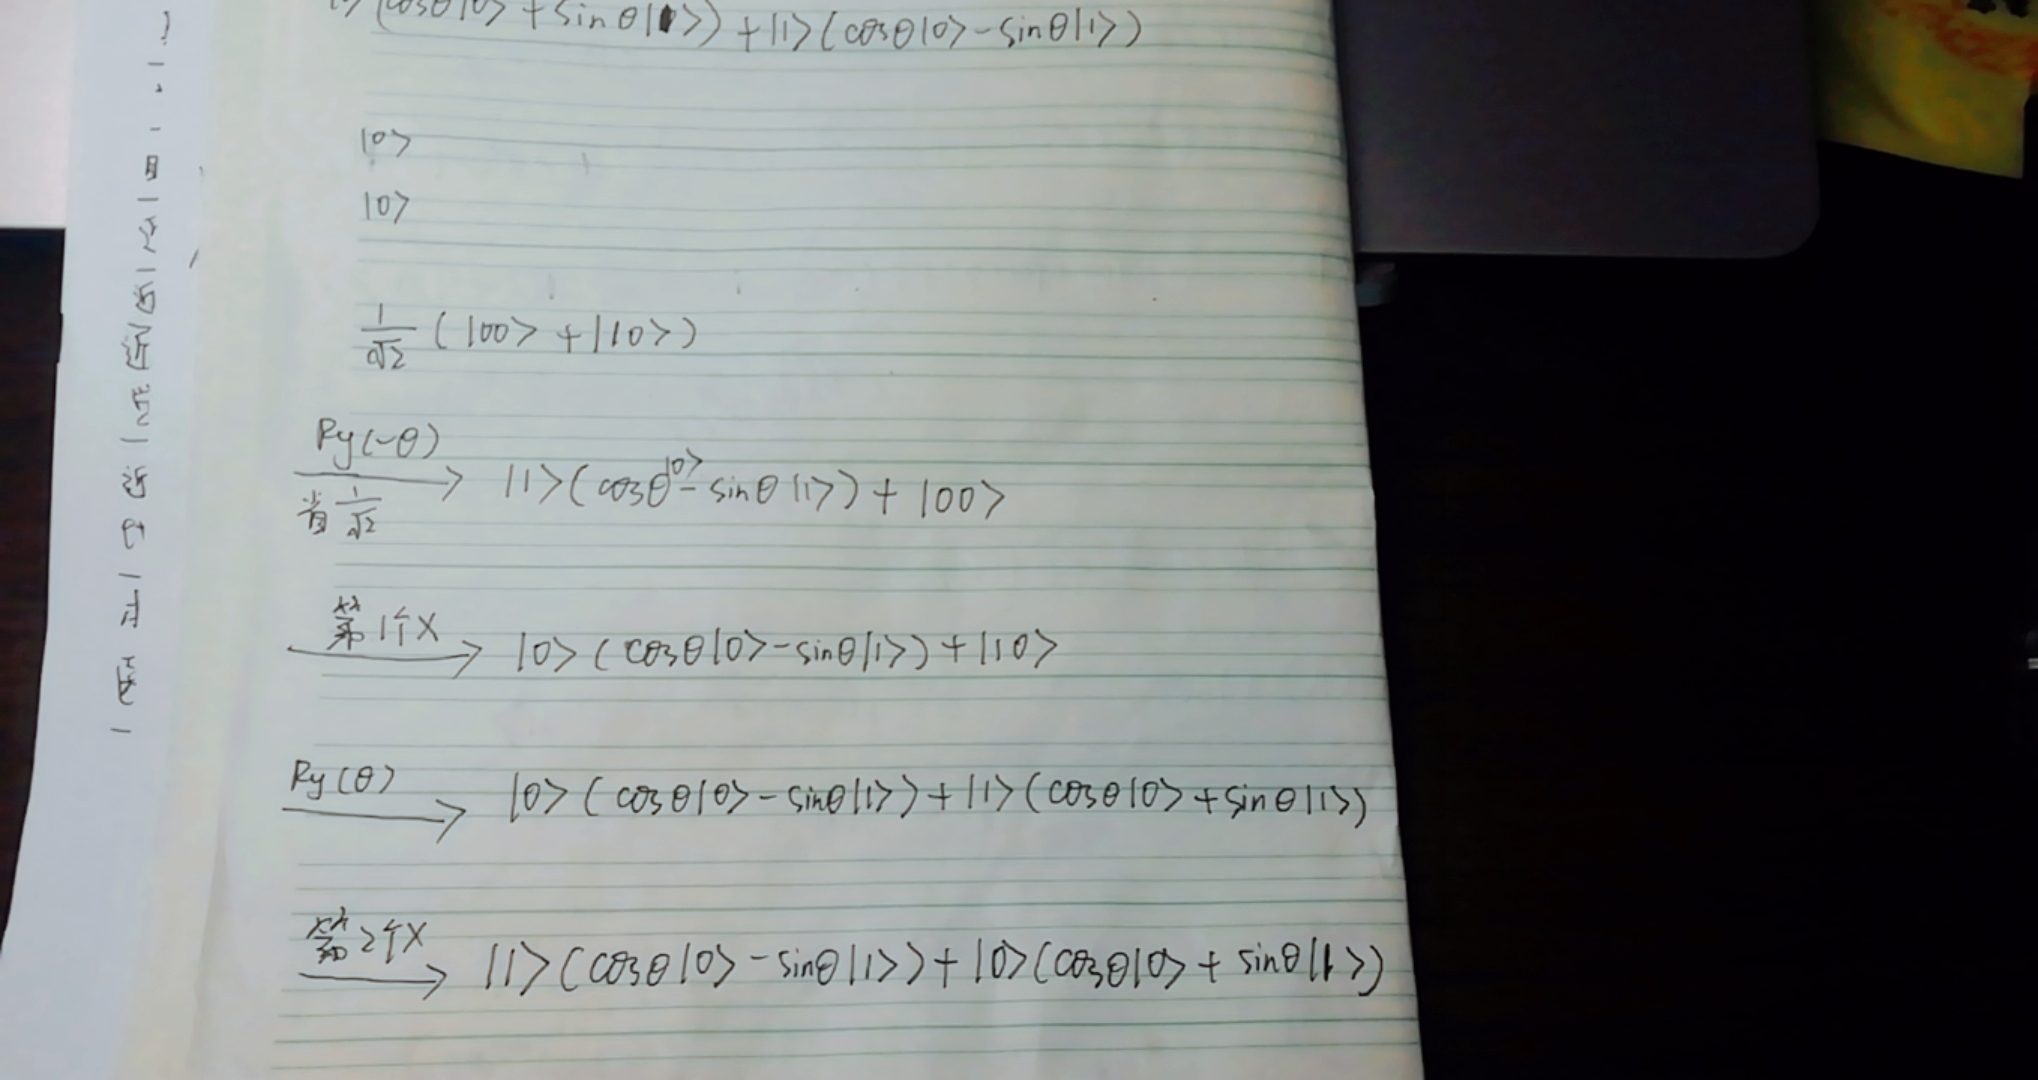 (cosθ|0> + sinθ|1>) + |1>(cosθ|0> - sinθ|1>)
|0>
|0>
1/√2 (|00> + |10>)
Ry(-θ)
省 1/√2
|1>(cosθ|0> - sinθ|1>) + |00>
第1个X
|0>(cosθ|0> - sinθ|1>) + |10>
Ry(θ)
|0>(cosθ|0> - sinθ|1>) + |1>(cosθ|0> + sinθ|1>)
第2个X
|1>(cosθ|0> - sinθ|1>) + |0>(cosθ|0> + sinθ|1>)